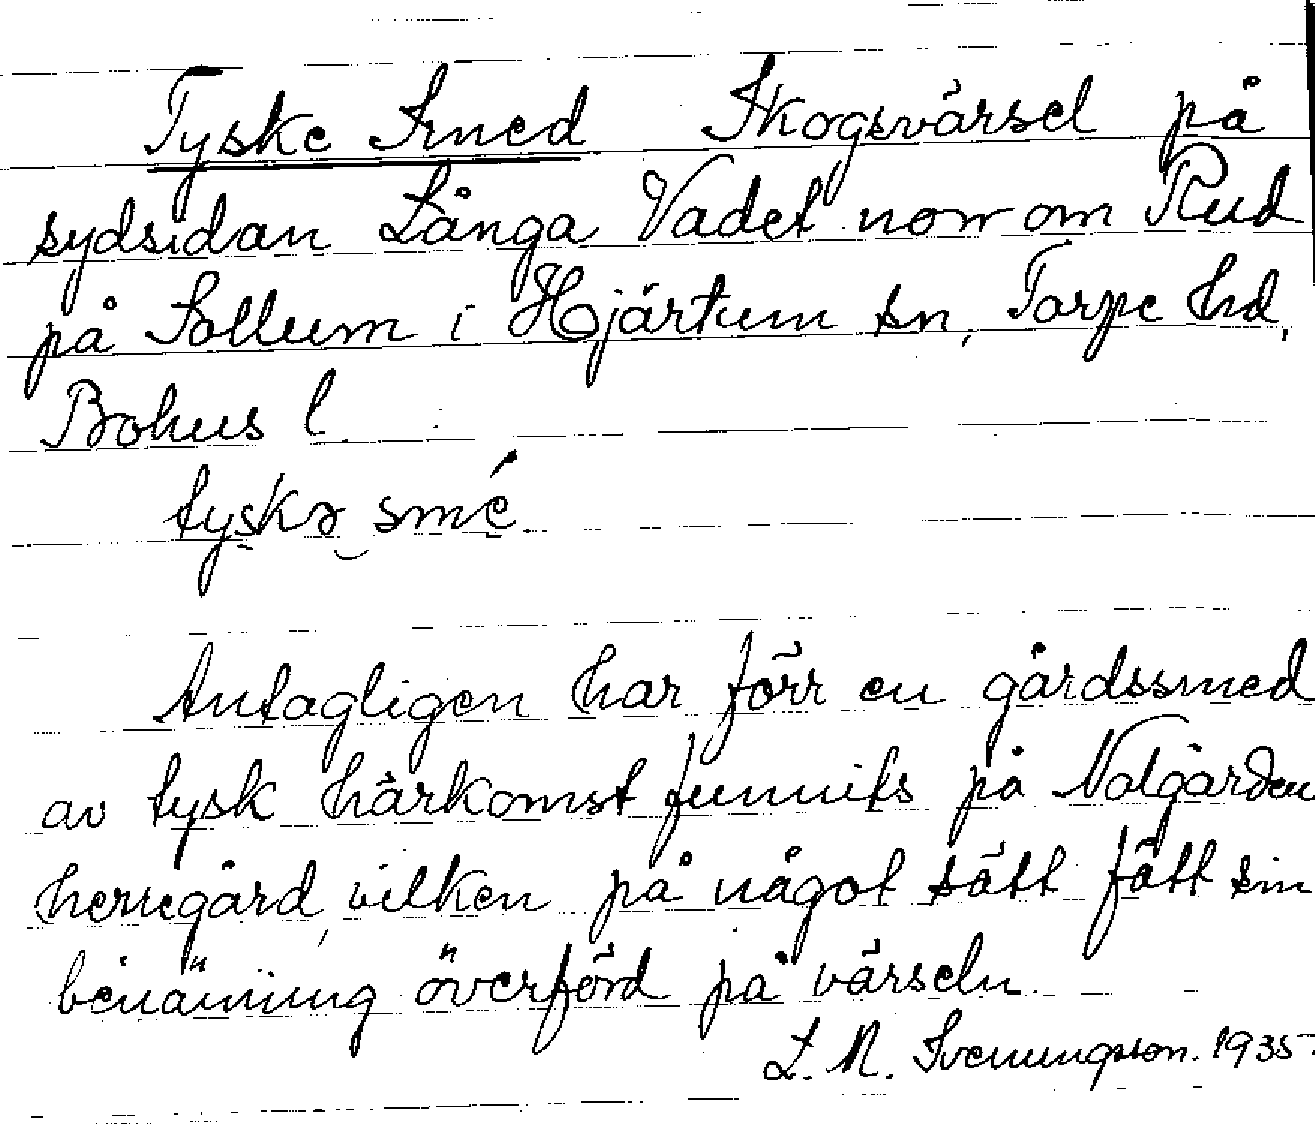 Tyske Smed Skogsvärsel på
sydsidan Långa Vadet norr om Rud
på Sollum i Hjärtum sn, Torpe hd,
Bohus l.
tyskə smé
Antagligen har förr en gårdssmed
av tysk härkomst funnits på Nolgården
herregård, vilken på något sätt fått sin
benämning överförd på värseln.
L. N. Svenungsson. 1935.